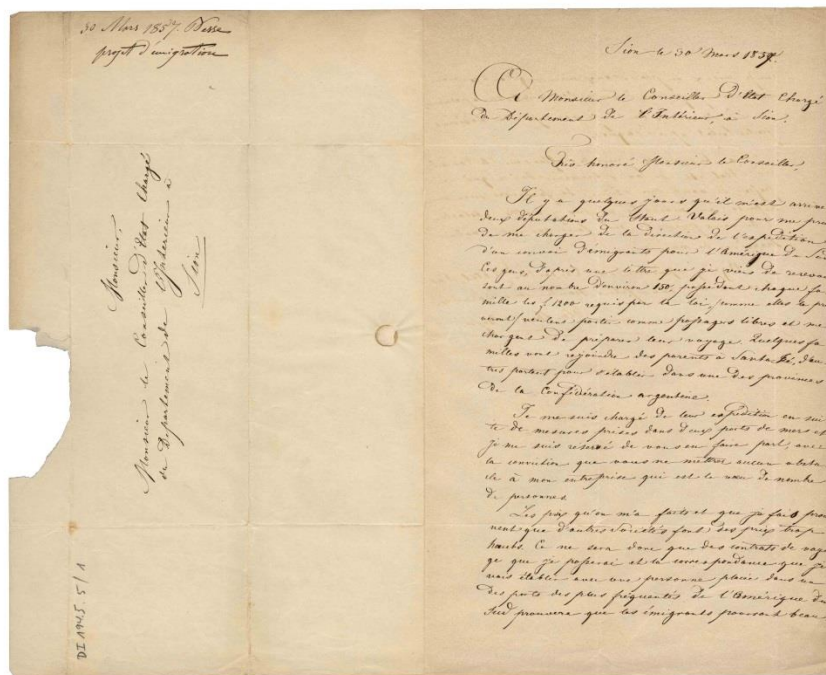 30 Mars 1857.
projet d'émigration
Monsieur,
Monsieur le Conseiller d'Etat Chargé
du Département de l'Intérieur à
Sion
DI 194.5. 5/1
Sion le 30 Mars 1857.
A Monsieur le Conseiller d'Etat Chargé
du Département de l'Intérieur, à Sion.
Très honoré Monsieur le Conseiller,
Il y a quelques jours qu'il m'est arrivé
deux députations du Haut Valais pour me prier
de me charger de la direction de l'expédition
d'un convoi d'émigrants pour l'Amérique du Sud
Ces gens, d'après une lettre que je viens de recevoir
sont au nombre d'environ 150, possédant chaque fa
mille les f 1200 requis par la loi, comme elles le
veulent partir comme passagers libres et me
chargent de préparer leur voyage. Quelques fa
milles vont rejoindre des parents à Santa Fé, d'au
tres partent pour s'établir dans une des provinces
de la Confédération argentine.
Je me suis chargé de leur expédition en sui
te de mesures prises dans deux ports de mer et
je me suis réservé de vous en faire part, avec
la conviction que vous ne mettrez aucun obsta
cle à mon entreprise qui est le vœu de nombre
de personnes.
Les prix qu'on m'a faits et que je fais prou
vent que d'autres Sociétés font des prix trop
hauts. Ce ne sera donc que des contrats de voya
ge que je passerai et la correspondance que je
vais établir avec une personne placée dans un
des ports des plus fréquentés de l'Amérique du
Sud prouvera que les émigrants pourront beau